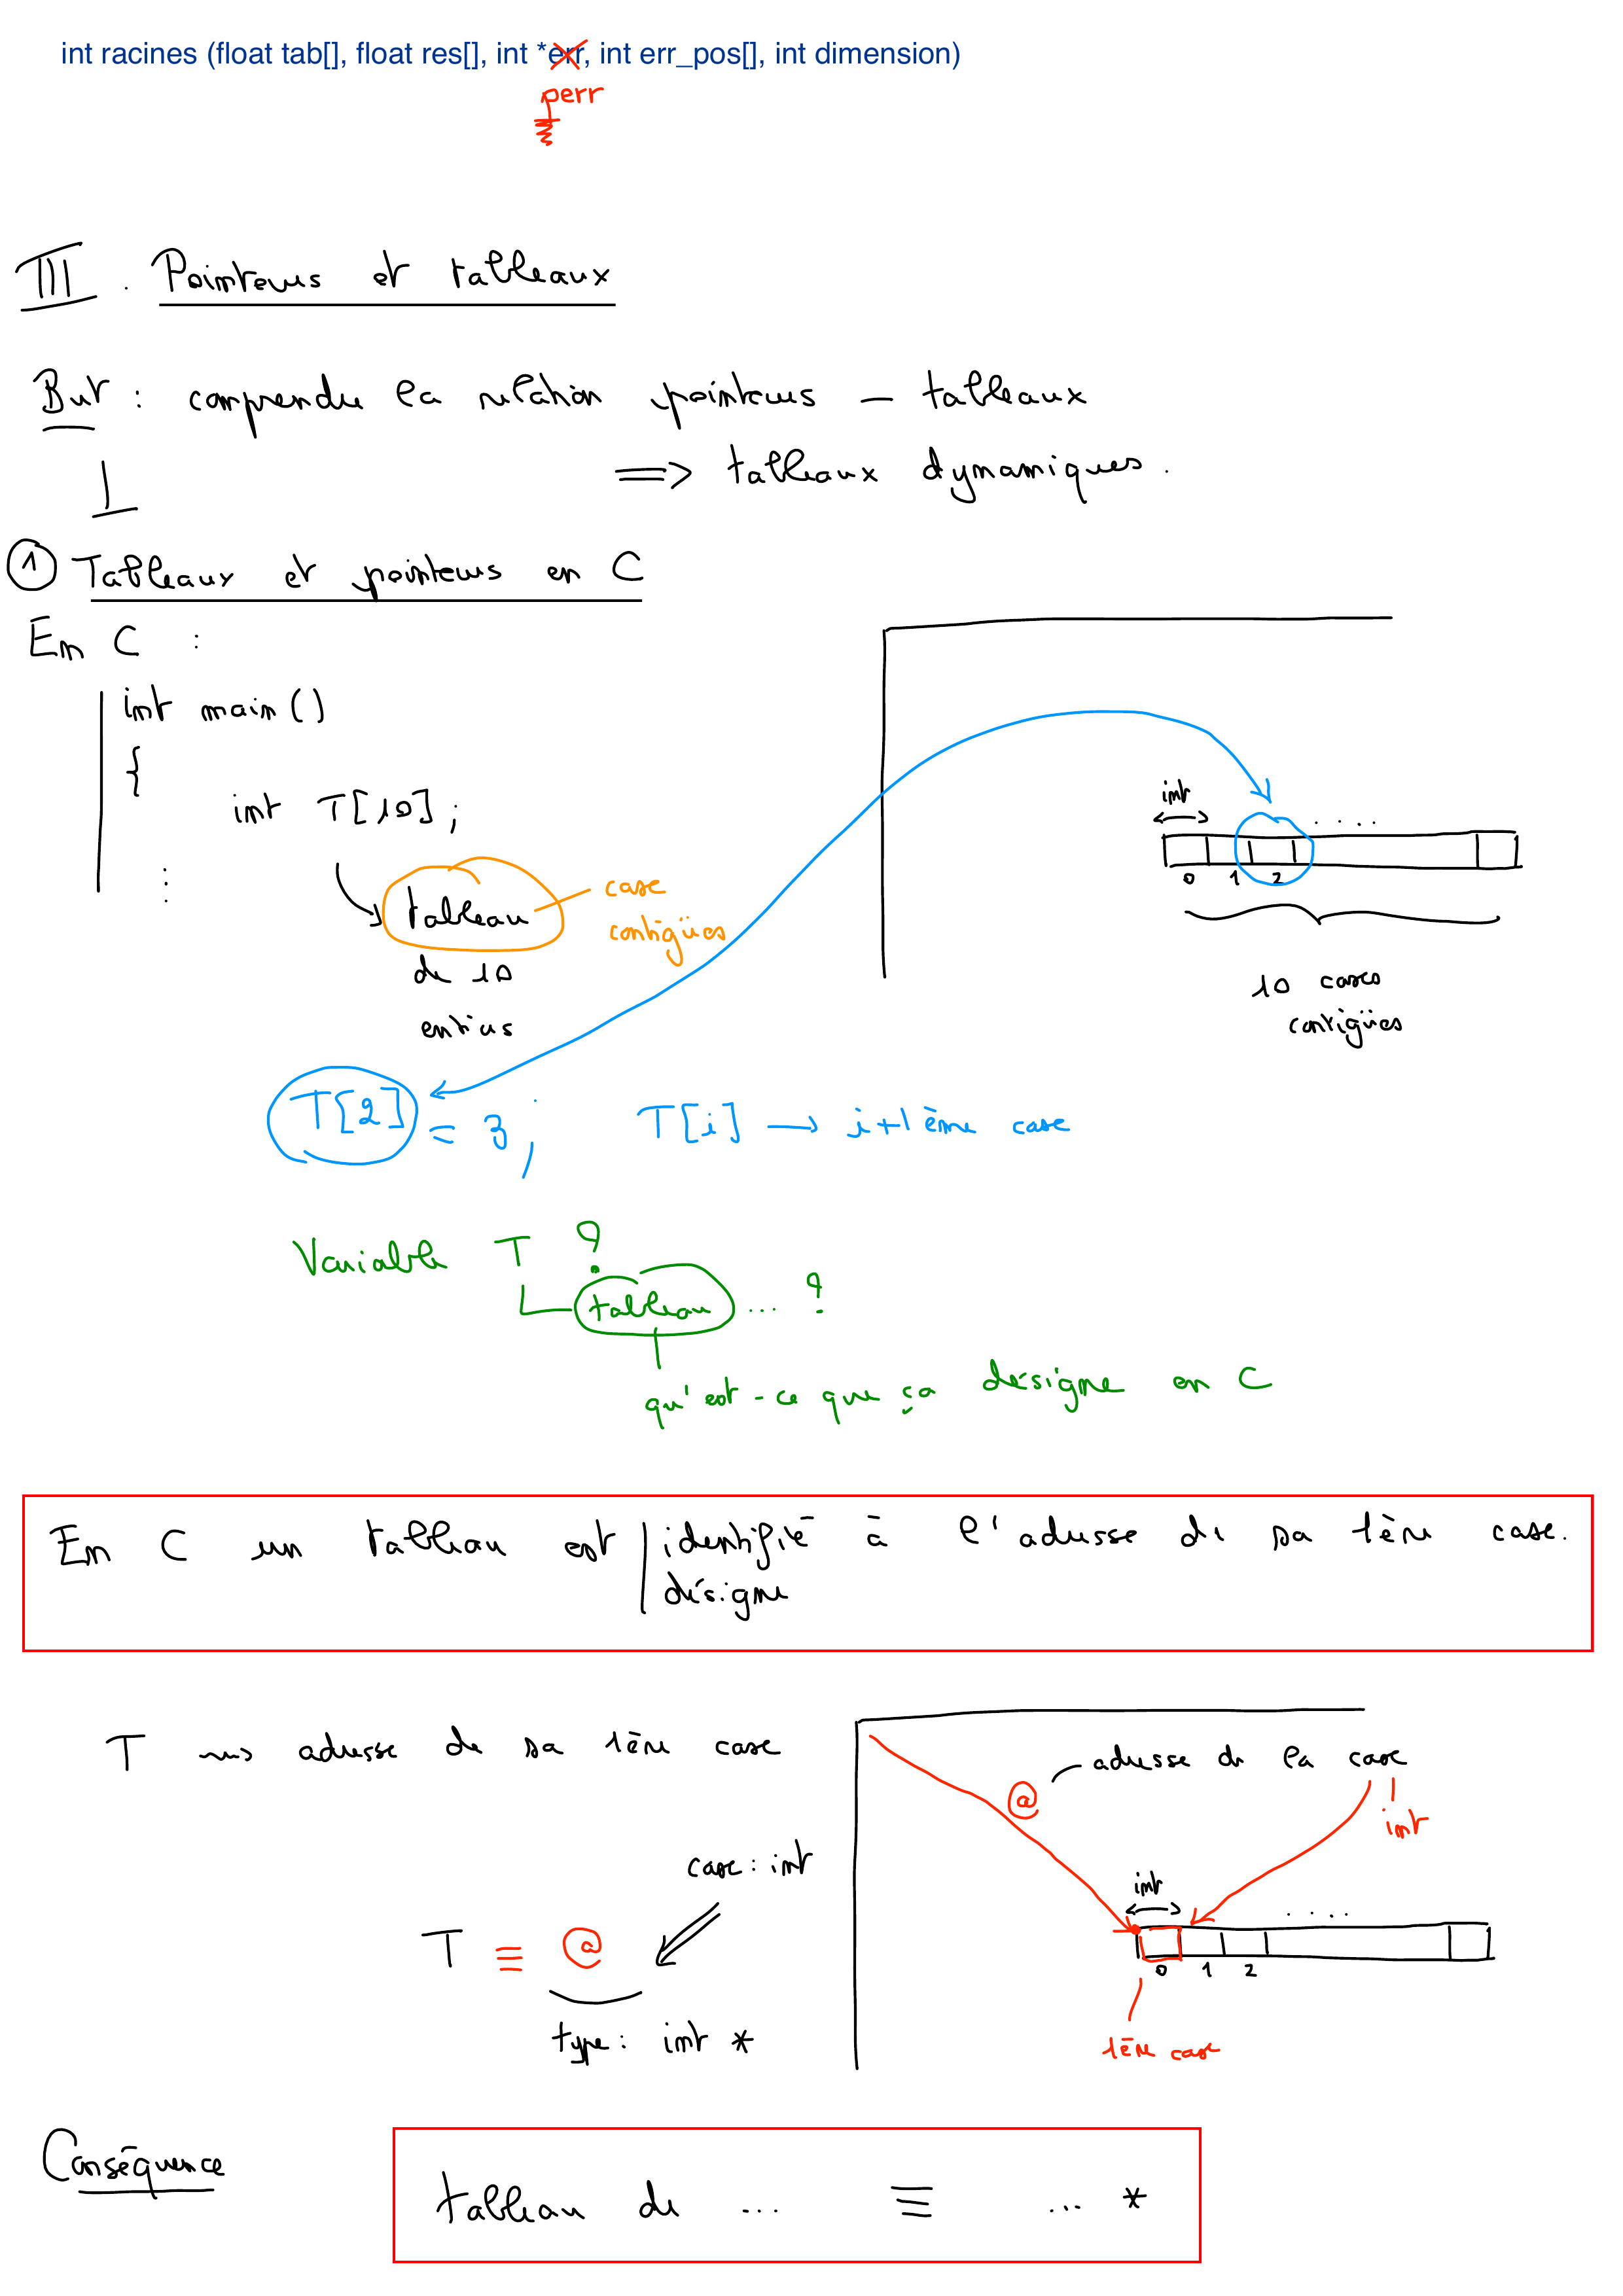 int racines (float tab[], float res[], int *err, int err_pos[], int dimension)
perr
III . Pointeurs et tableaux
But : comprendre la relation pointeurs — tableaux
=> tableaux dynamiques.
① Tableaux et pointeurs en C
En C :
int main ()
{
int T[10];
⋮
tableau
de 10
entiers
case
contigües
int
. . . .
0 1 2
10 cases
contigües
T[2] = 3 ; T[i] → i+1ème case
Variable T ?
tableau ... ?
qu'est-ce que ça désigne en C
En C un tableau est identifié à l'adresse de sa 1ère case.
désigne
T ~> adresse de sa 1ère case
@ adresse de la case
int
case : int
T ≡ @
type : int *
int
. . . .
0 1 2
1ère case
Conséquence
tableau de ... ≡ ... *